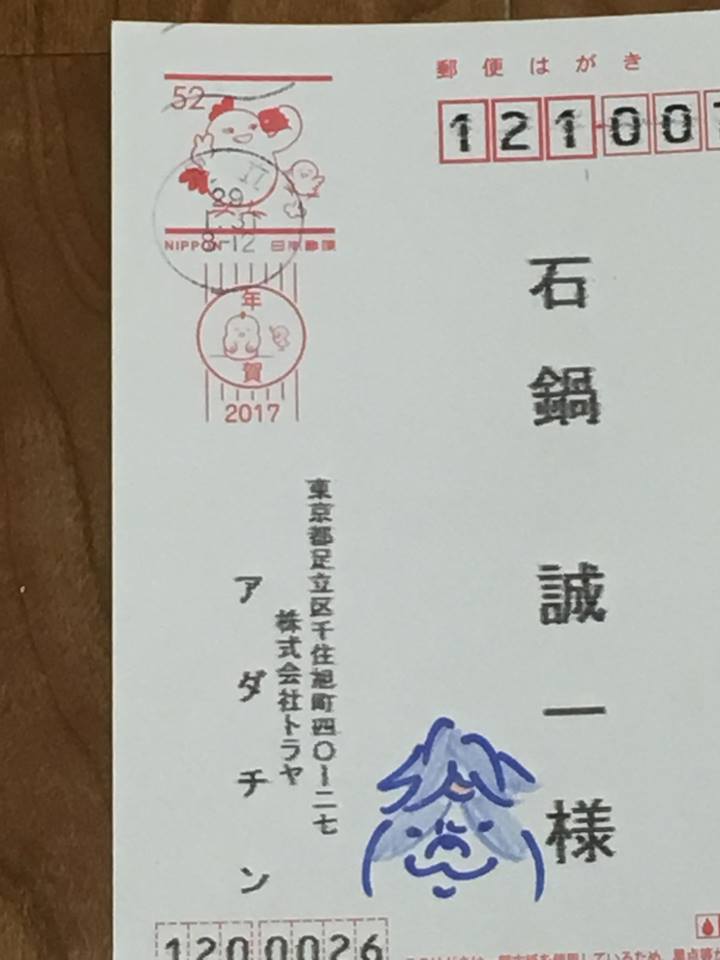 郵便はがき
12100
石鍋 誠一 様
52
29
1.31
8-12
NIPPON 日本郵便
年賀
2017
東京都足立区千住旭町四〇ー二七
株式会社トラヤ
アダチン
1200026